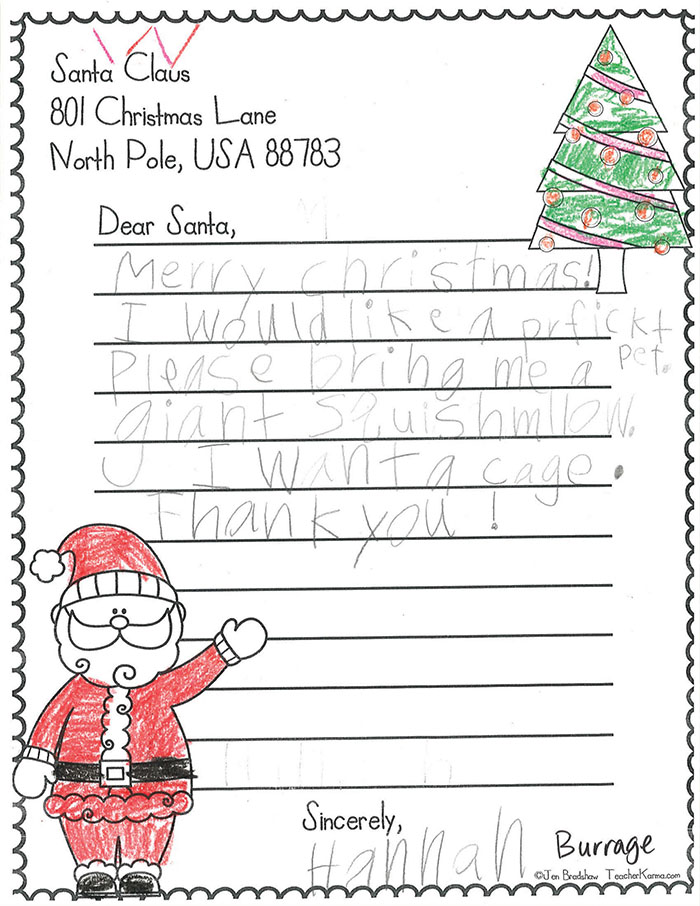 Santa Claus
801 Christmas Lane
North Pole, USA 88783
Dear Santa,
Merry christmas!
I would like a prfickt
pet.
Please bring me a
giant Squishmllow.
I want a cage.
Thank you!
Sincerely,
Hannah Burrage
©Jen Bradshaw TeacherKarma.com